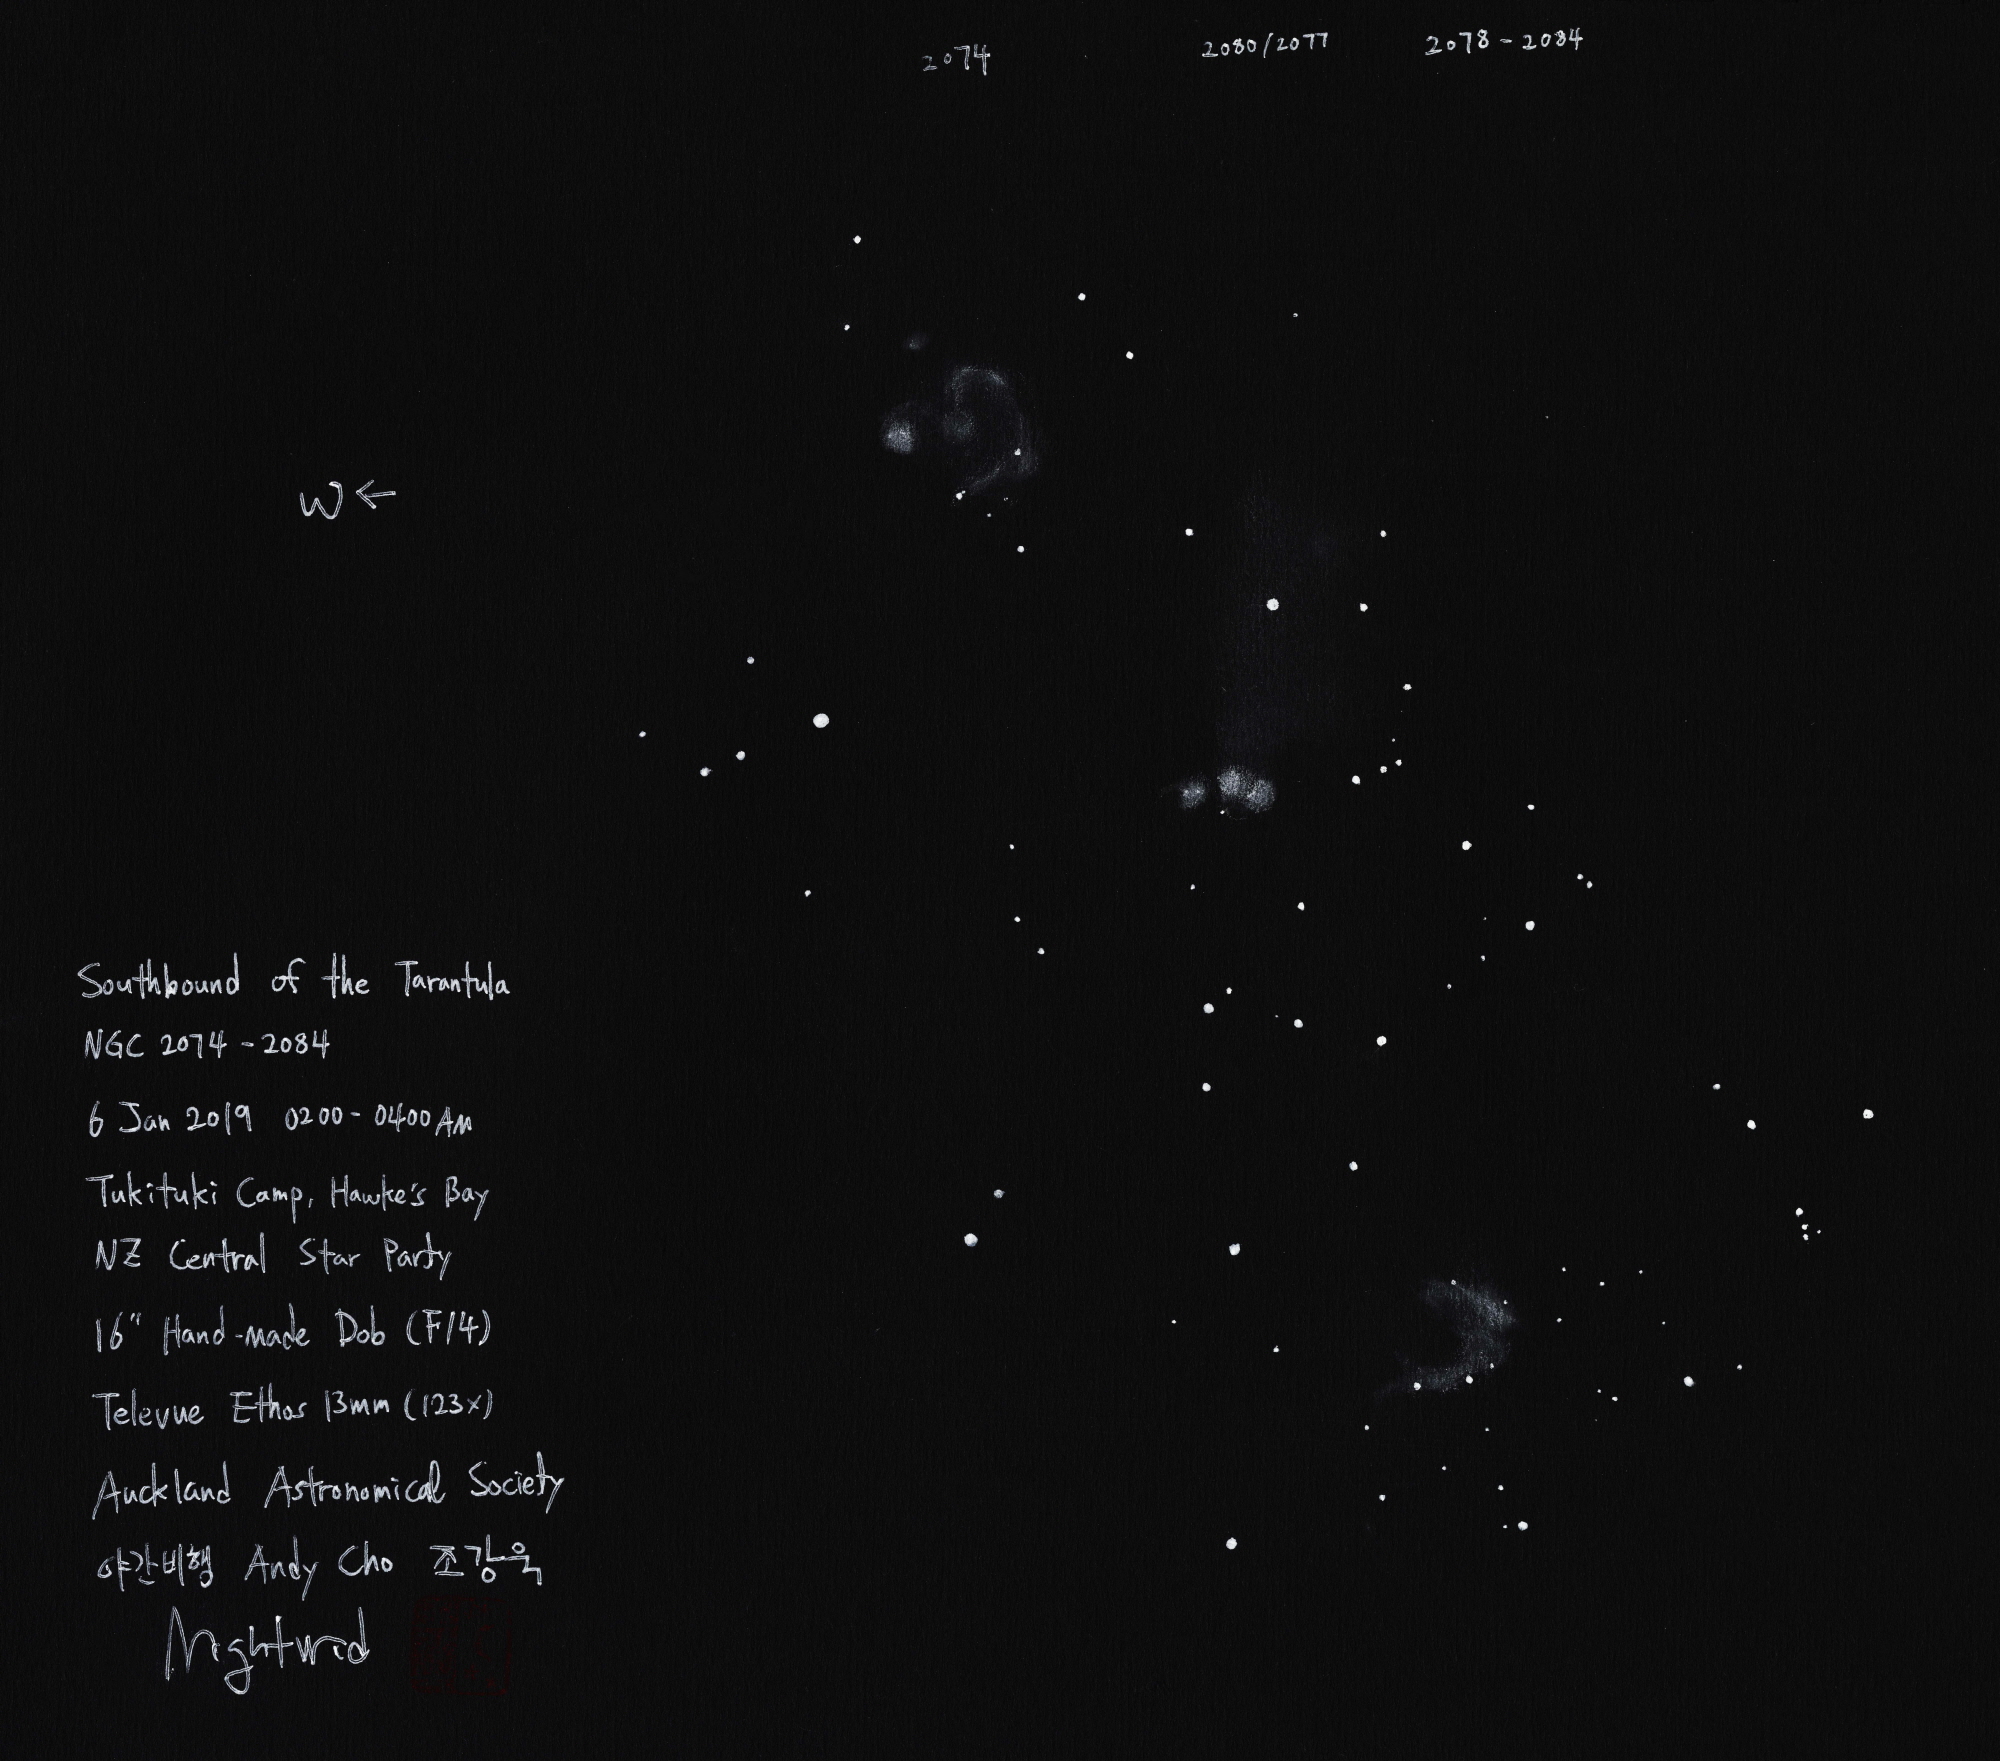 2074 2080/2077 2078-2084
W←
Southbound of the Tarantula
NGC 2074-2084
6 Jan 2019 0200-0400 AM
Tukituki Camp, Hawke's Bay
NZ Central Star Party
16" Hand-made Dob (F/4)
Televue Ethos 13mm (123x)
Auckland Astronomical Society
야간비행 Andy Cho 조강욱